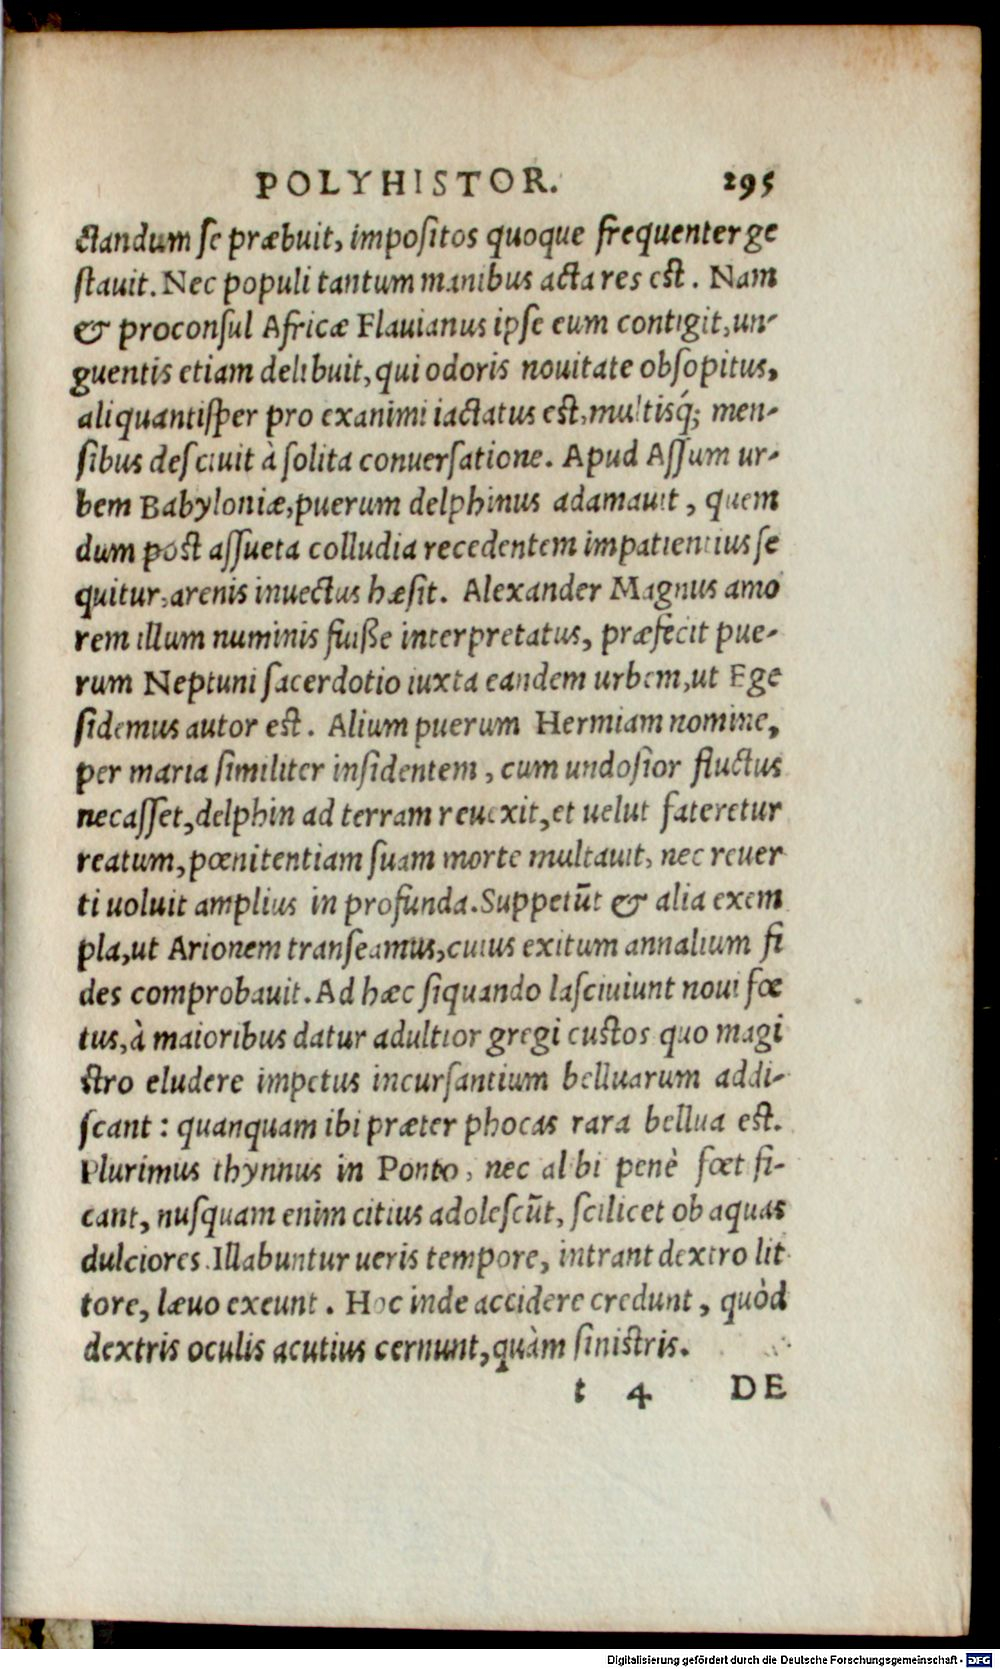 POLYHISTOR. 295
ctandum se præbuit, impositos quoque frequenter ge
stauit. Nec populi tantum manibus acta res est. Nam
& proconsul Africæ Flauianus ipse eum contigit, un-
guentis etiam delibuit, qui odoris nouitate obsopitus,
aliquantisper pro exanimi iactatus est, multisq́; men-
sibus desciuit à solita conuersatione. Apud Assum ur-
bem Babyloniæ, puerum delphinus adamauit, quem
dum post assueta colludia recedentem impatientius se
quitur, arenis inuectus hæsit. Alexander Magnus amo
rem illum numinis fuiße interpretatus, præfecit pue-
rum Neptuni sacerdotio iuxta eandem urbem, ut Ege
sidemus autor est. Alium puerum Hermiam nomine,
per maria similiter insidentem, cum undosior fluctus
necasset, delphin ad terram reuexit, et uelut fateretur
reatum, pœnitentiam suam morte multauit, nec reuer
ti uoluit amplius in profunda. Suppetũt & alia exem
pla, ut Arionem transeamus, cuius exitum annalium fi
des comprobauit. Ad hæc siquando lasciuiunt noui fœ
tus, à maioribus datur adultior gregi custos quo magi
stro eludere impetus incursantium belluarum addi-
scant: quanquam ibi præter phocas rara bellua est.
Plurimus thynnus in Ponto, nec alibi penè fœtifi-
cant, nusquam enim citius adolescũt, scilicet ob aquas
dulciores. Illabuntur ueris tempore, intrant dextro lit
tore, læuo exeunt. Hoc inde accidere credunt, quòd
dextris oculis acutius cernunt, quàm sinistris.
t 4 DE
Digitalisierung gefördert durch die Deutsche Forschungsgemeinschaft - DFG